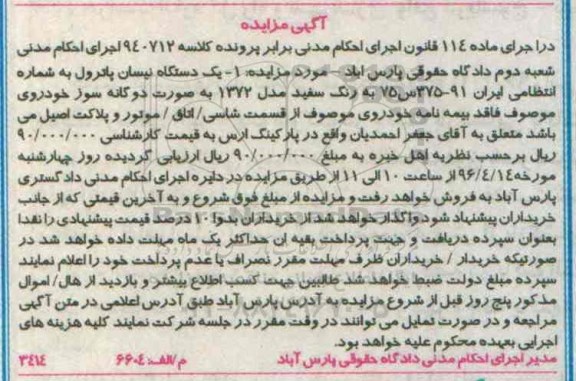 آگهی مزایده
در اجرای ماده ۱۱۴ قانون اجرای احکام مدنی برابر پرونده کلاسه ۹۴۰۷۱۲ اجرای احکام مدنی
شعبه دوم دادگاه حقوقی پارس آباد مورد مزایده: ۱- یک دستگاه نیسان پاترول به شماره
انتظامی ایران ۹۱-۳۷۵س۷۵ به رنگ سفید مدل ۱۳۷۲ به صورت دوگانه سوز خودروی
موصوف فاقد بیمه نامه خودروی موصوف از قسمت شاسی/ اتاق / موتور و پلاکت اصیل می
باشد متعلق به آقای جعفر احمدیان واقع در پارکینگ ارس به قیمت کارشناسی ۹۰/۰۰۰/۰۰۰
ریال برحسب نظریه اهل خبره به مبلغ ۹۰/۰۰۰/۰۰۰ ریال ارزیابی گردیده روز چهارشنبه
مورخه ۹۶/۴/۱۴ از ساعت ۱۰ الی ۱۱ از طریق مزایده در دایره اجرای احکام مدنی دادگستری
پارس آباد به فروش خواهد رفت و مزایده از مبلغ فوق شروع و به آخرین قیمتی که از جانب
خریداران پیشنهاد شود واگذار خواهد شد از خریداران بدوا ۱۰ درصد قیمت پیشنهادی را نقدا
بعنوان سپرده دریافت و جهت پرداخت بقیه آن حداکثر یک ماه مهلت داده خواهد شد در
صورتیکه خریدار / خریداران ظرف مهلت مقرر نصراف یا عدم پرداخت خود را اعلام نمایند
سپرده مبلغ دولت ضبط خواهد شد طالبین جهت کسب اطلاع بیشتر و بازدید از هال/ اموال
مذکور پنج روز قبل از شروع مزایده به آدرس پارس آباد طبق آدرس اعلامی در متن آگهی
مراجعه و در صورت تمایل می توانند در وقت مقرر در جلسه شرکت نمایند کلیه هزینه های
اجرایی بعهده محکوم علیه خواهد بود.
مدیر اجرای احکام مدنی دادگاه حقوقی پارس آباد م/الف: ۶۶۰۴ ۳۴۱۴